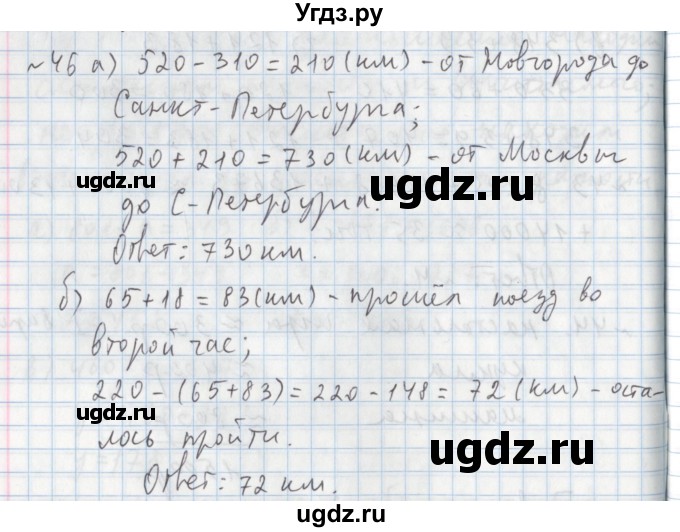 Угдз.ру
№46 а) 520 - 310 = 210 (км) - от Новгорода до
Санкт-Петербурга;
520 + 210 = 730 (км) - от Москвы
до С-Петербурга.
Ответ: 730 км.
б) 65 + 18 = 83 (км) - прошёл поезд во
второй час;
220 - (65 + 83) = 220 - 148 = 72 (км) - оста-
лось пройти.
Ответ: 72 км.
ugdz.ru
ugdz.ru
ugdz.ru
ugdz.ru
ugdz.ru
ugdz.ru
Угдз.ру